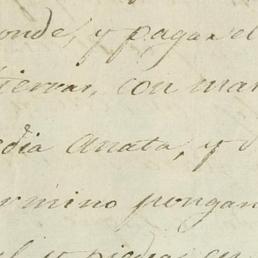 onde, y pagar el
tierras, con mar
edia Anata, y
ermino pongan
y